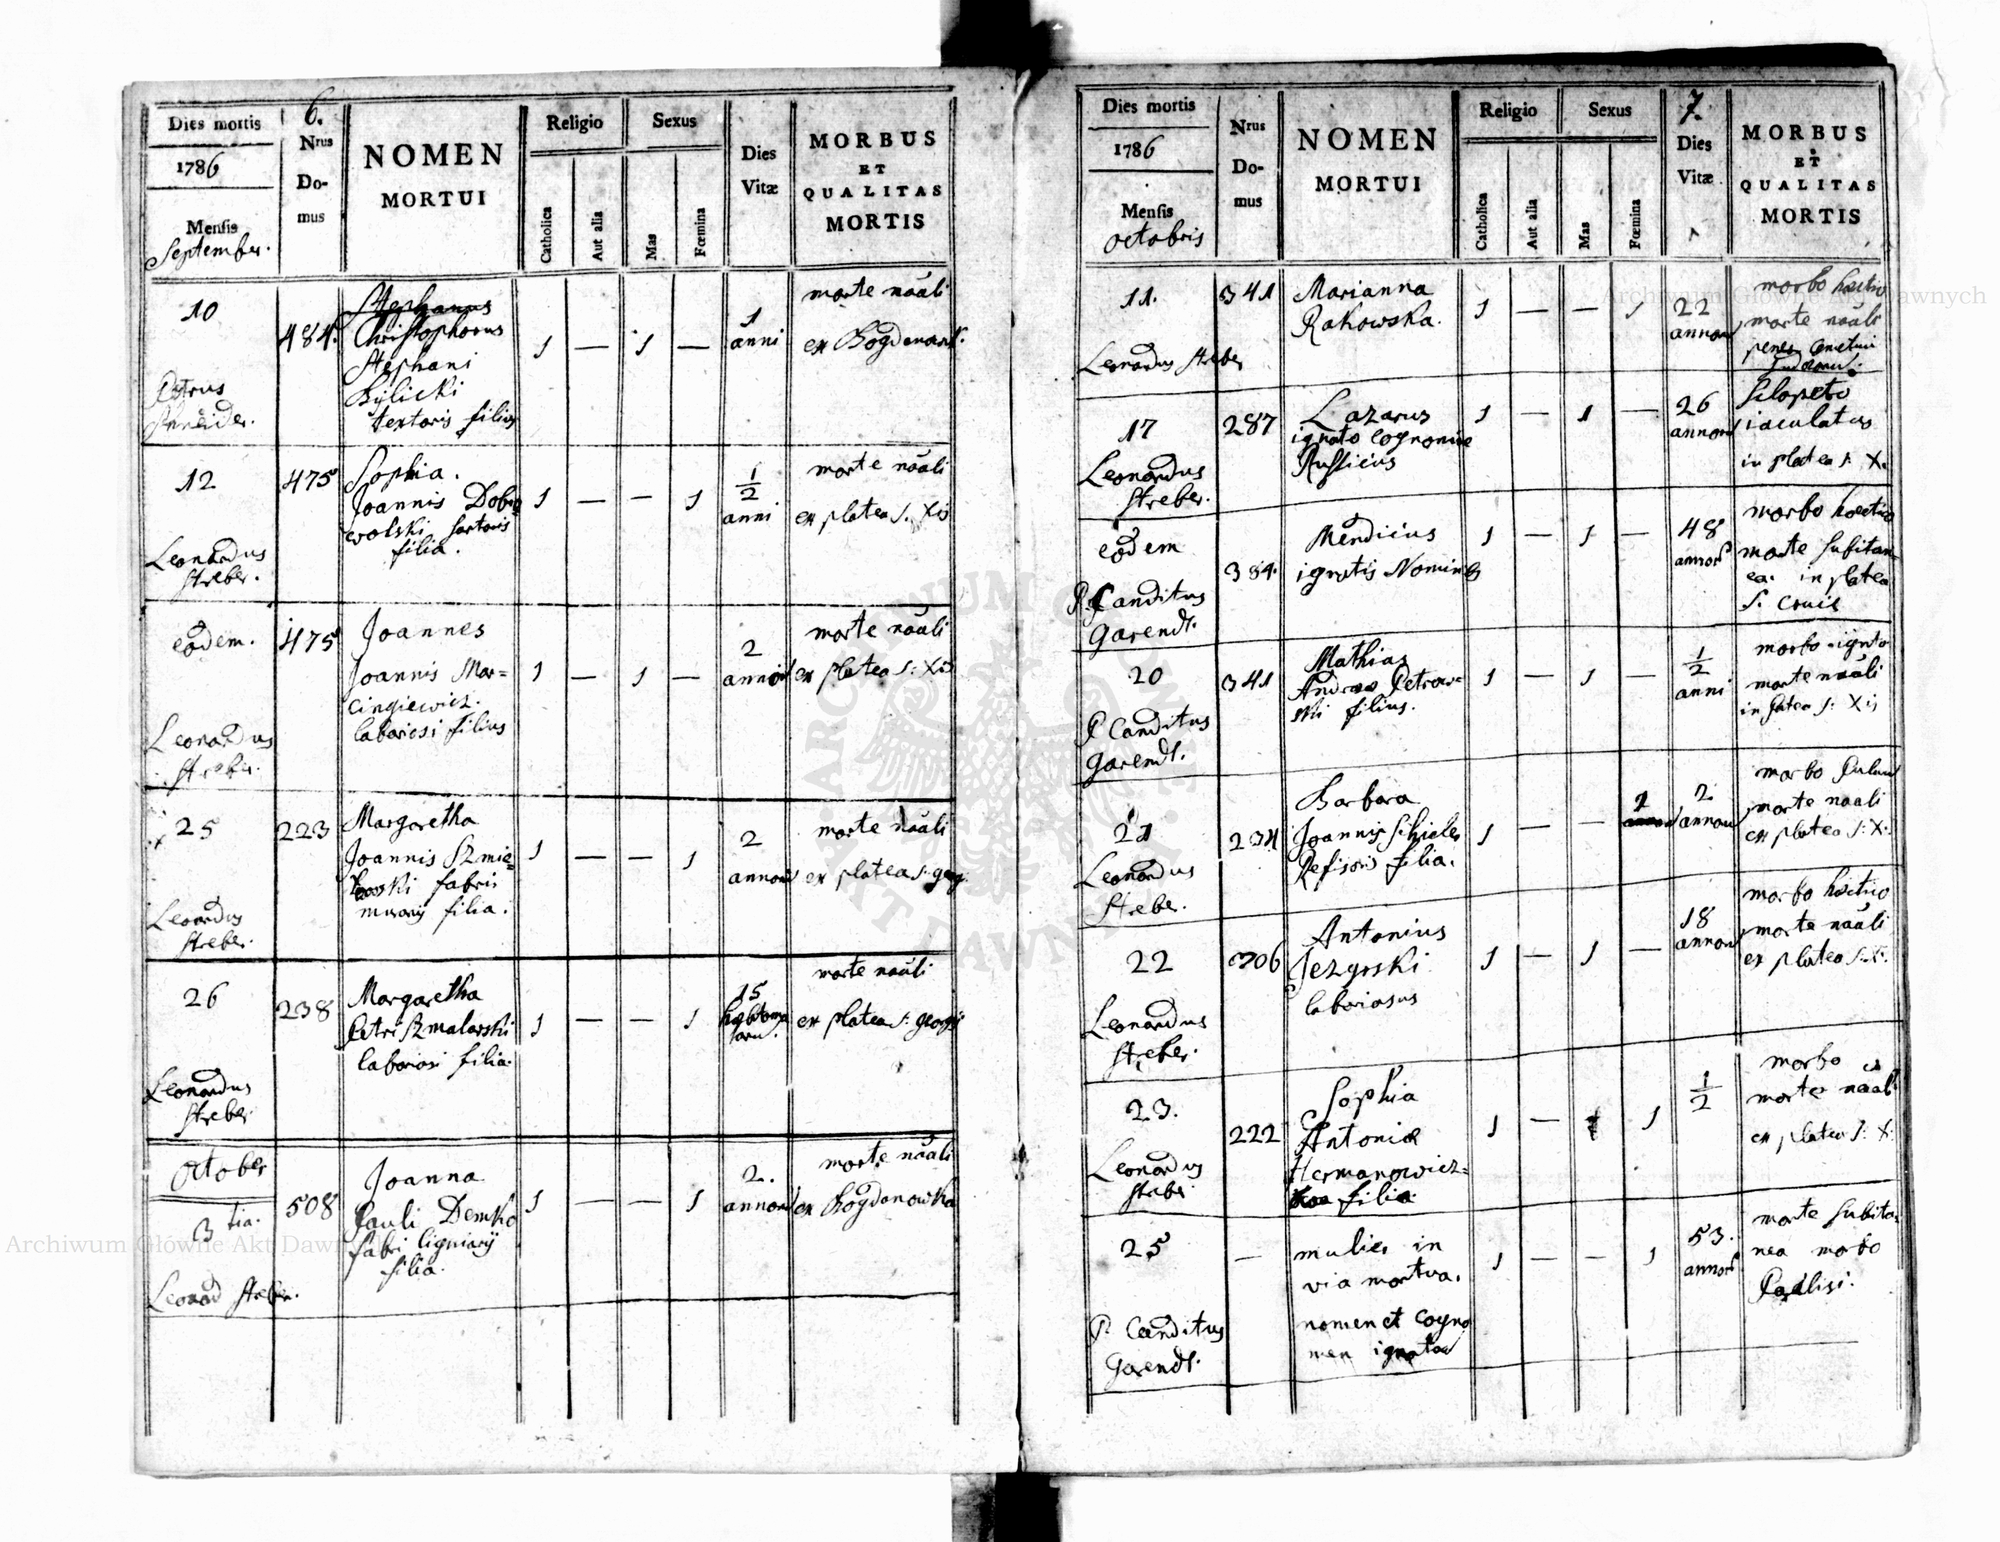 6.
Dies mortis
1786
Mensis
September.
Nrus
Do-
mus
NOMEN
MORTUI
Religio
Catholica
Aut alia
Sexus
Mas
Fœmina
Dies
Vitæ
MORBUS
ET
QUALITAS
MORTIS
10
Petrus
484.
Stephanus
Christophorus
Stephani
Bylicki
textoris filius
1 — 1 —
1
anni
morte nāāli
12
Leonardus
Streber.
475
Sophia.
Joannis Dobro
wolski sartoris
filia.
1 — — 1
1/2
anni
morte nāāli
ex platea S: Xis
eodem.
Leonardus
Streber.
475
Joannes
Joannis Mar=
cingiewicz.
laboriosi filius
1 — 1 —
2
annor
morte nāāli
ex platea S: Xis
25
Leonardus
Streber.
223
Margaretha
Joannis Szmie=
fabri
murarij filia.
1 — — 1
2
annor
morte nāāli
ex platea S: georg.
26
Leonardus
Streber.
238
Margaretha
Petri Szmalarski
laboriosi filia.
1 — — 1
15
morte nāāli
ex platea S: georgij
October
3 tia.
Leonard Streber.
508
Joanna
Pauli Demko
fabri ligniarij
filia.
1 — — 1
2.
annor
morte nāāli
ex Bogdanowka
7.
Dies mortis
1786
Mensis
octobris
Nrus
Do-
mus
NOMEN
MORTUI
Religio
Catholica
Aut alia
Sexus
Mas
Fœmina
Dies
Vitæ
MORBUS
ET
QUALITAS
MORTIS
11.
Leonardus Streber
341
Marianna
Rakowska.
1 — — 1
22
annor
morbo hectico
morte nāāli
penes
17
Leonardus
Streber.
287
Lazarus
ignoto cognomine
Rusticus
1 — 1 —
26
annor
sclopeto
iaculatus
in platea S. X.
eodem
P. Canditus
Garendt.
384.
Mendicus
ignotis Nominis
1 — 1 —
48
annor
morbo hoectico
morte subitan=
ea. in platea
S. Crucis
20
P Canditus
Garendt.
341
Mathias
Andreas Petrow=
ski filius.
1 — 1 —
1/2
anni
morbo ignoto
morte nāāli
in platea S: Xis
21
Leonardus
Streber.
234
Barbara
Joannis Schieler
filia.
1 — — 1
2
annor
morbo
morte nāāli
ex platea S: X.
22
Leonardus
Streber.
306
Antonius
Jezyrski
laboriosus
1 — 1 —
18
annor
morbo hoectico
morte nāāli
ex platea S: X.
23.
Leonardus
Streber
222
Sophia
Antoniæ
Hermanowicz=
filia
1 — 1
1/2
morbo
morte nāāli
ex platea S: X.
25
P. Canditus
Garendt.
—
mulier in
via mortua.
nomen et cogno
men ignota
1 — — 1
53.
annor
morte subita=
nea morbo
Paralisi.
Archiwum Główne Akt Dawnych
Archiwum Główne Akt Dawnych
ARCHIWUM GŁÓWNE AKT DAWNYCH